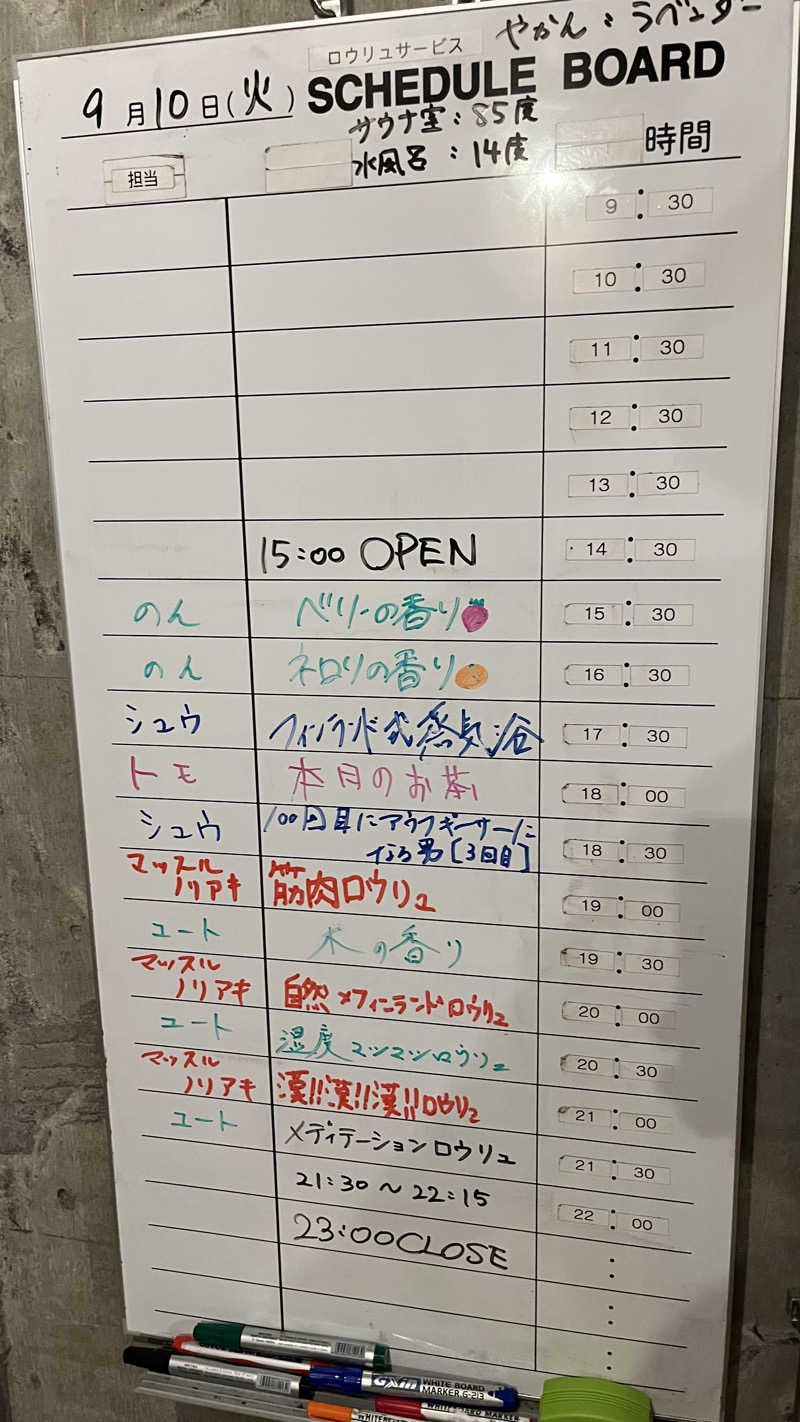 やかん:ラベンダー
ロウリュサービス
9月10日(火) SCHEDULE BOARD
サウナ室:85度
水風呂:14度
担当 時間
9:30
10:30
11:30
12:30
13:30
15:00 OPEN 14:30
のん ベリーの香り 15:30
のん ネロリの香り 16:30
シュウ フィンランド式蒸気浴 17:30
トモ 本月のお茶 18:00
シュウ 100回目にアウフギーサーに
なる男[3回目] 18:30
マッスル
ノリアキ 筋肉ロウリュ 19:00
ユート 木の香り 19:30
マッスル
ノリアキ 自然メフィニランドロウリュ 20:00
ユート 湿度マシマシロウリュ 20:30
マッスル
ノリアキ 漢!!漢!!漢!!ロウリュ 21:00
ユート メディテーションロウリュ 21:30
21:30~22:15 22:00
23:00CLOSE :
:
:
WHITE BOARD
MARKER